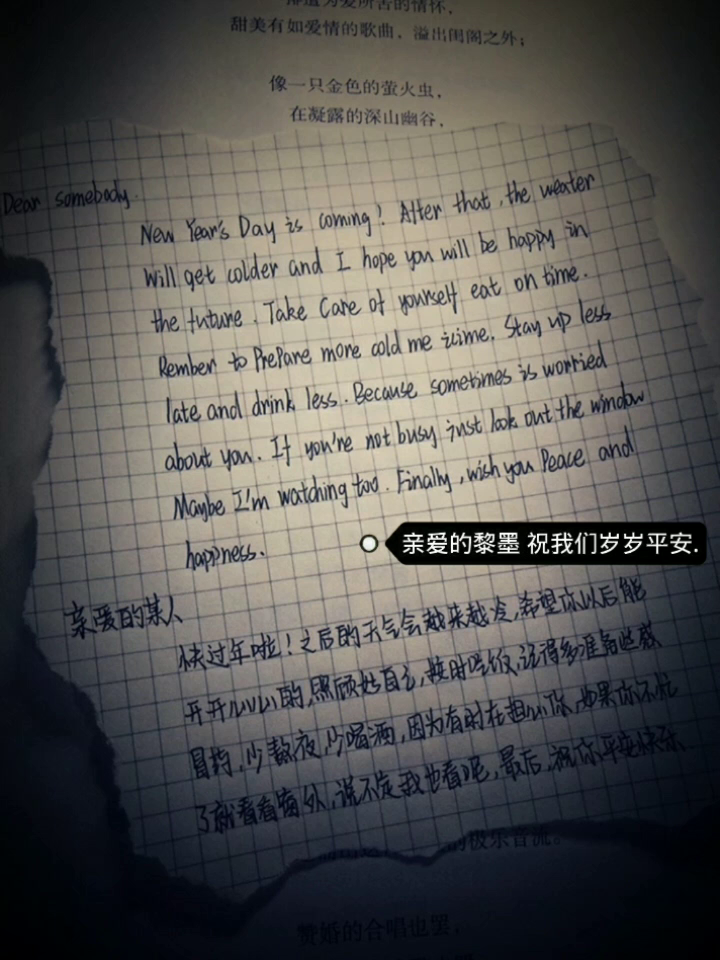 为爱所苦的情怀，
甜美有如爱情的歌曲，溢出闺阁之外；
像一只金色的萤火虫，
在凝露的深山幽谷，
Dear somebody.
New Year's Day is coming! After that, the weater
will get colder and I hope you will be happy in
the future. Take Care of yourself eat on time.
Rember to PrePare more cold me icime. Stay up less
late and drink less. Because sometimes is worried
about you. If you're not busy just look out the window
Maybe I'm watching too. Finally, wish you Peace and
happness.
亲爱的黎墨 祝我们岁岁平安.
亲爱的某人
快过年啦！之后的天气会越来越冷，希望你以后能
开开心心的，照顾好自己，按时吃饭，记得多准备些感
冒药，少熬夜，少喝酒，因为有时在担心你，如果你不忙
了就看看窗外，说不定我也看呢，最后，祝你平安快乐
的极乐音流。
赞婚的合唱也罢，